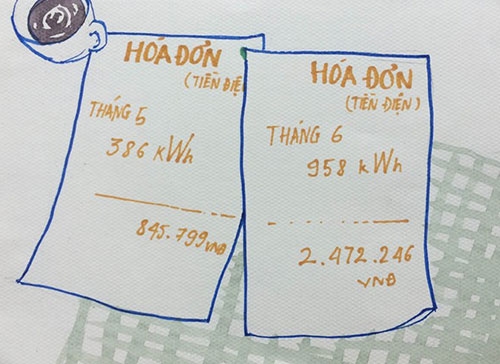 HÓA ĐƠN
(TIỀN ĐIỆ
THÁNG 5
386 kWh
845.799 VNĐ
HÓA ĐƠN
(TIỀN ĐIỆN)
THÁNG 6
958 kWh
2.472.246
VNĐ